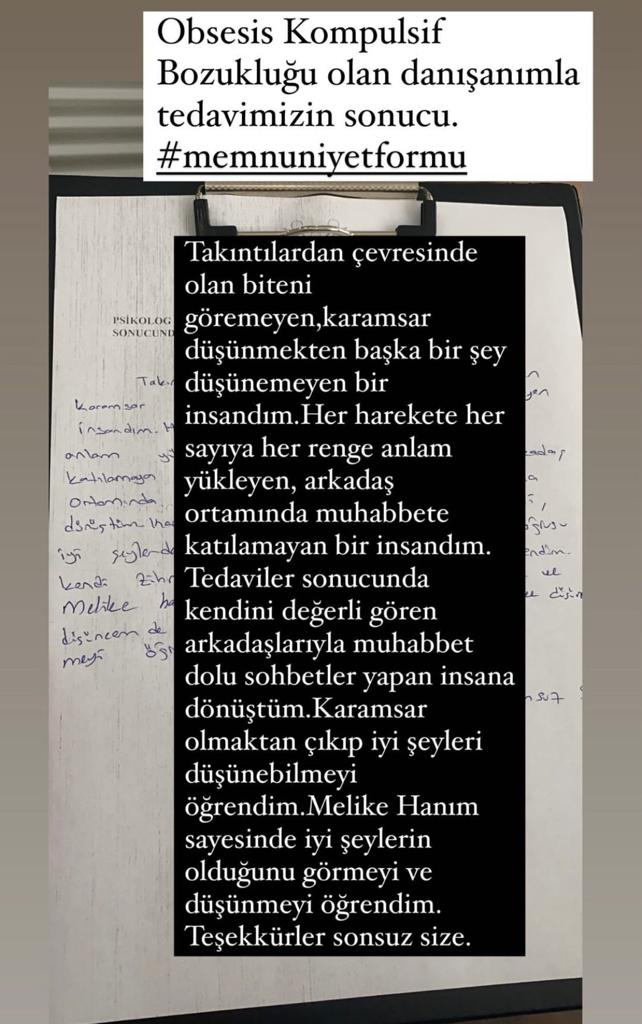 Obsesis Kompulsif
Bozukluğu olan danışanımla
tedavimizin sonucu.
#memnuniyetformu
Takıntılardan çevresinde
olan biteni
göremeyen,karamsar
düşünmekten başka bir şey
düşünemeyen bir
insandım.Her harekete her
sayıya her renge anlam
yükleyen, arkadaş
ortamında muhabbete
katılamayan bir insandım.
Tedaviler sonucunda
kendini değerli gören
arkadaşlarıyla muhabbet
dolu sohbetler yapan insana
dönüştüm.Karamsar
olmaktan çıkıp iyi şeyleri
düşünebilmeyi
öğrendim.Melike Hanım
sayesinde iyi şeylerin
olduğunu görmeyi ve
düşünmeyi öğrendim.
Teşekkürler sonsuz size.
PSİKOLOG
SONUCUND
Karamsar
insandım.
anlam
katılamayan
Ortamında
dönüştüm
iyi
kendi
Melike
düşüncem de
meyi